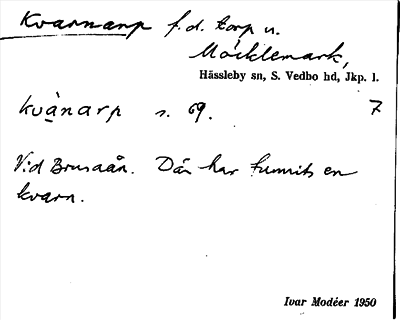 Kvarnarp f.d. torp u.
Möcklemark,
Hässleby sn, S. Vedbo hd, Jkp. l.
kvànarp s. 69. 7
Vid Brusaån. Där har funnits en
kvarn.
Ivar Modéer 1950